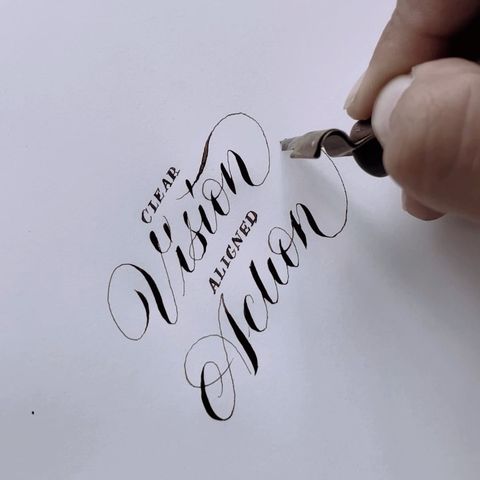 CLEAR
Vision
ALIGNED
Action